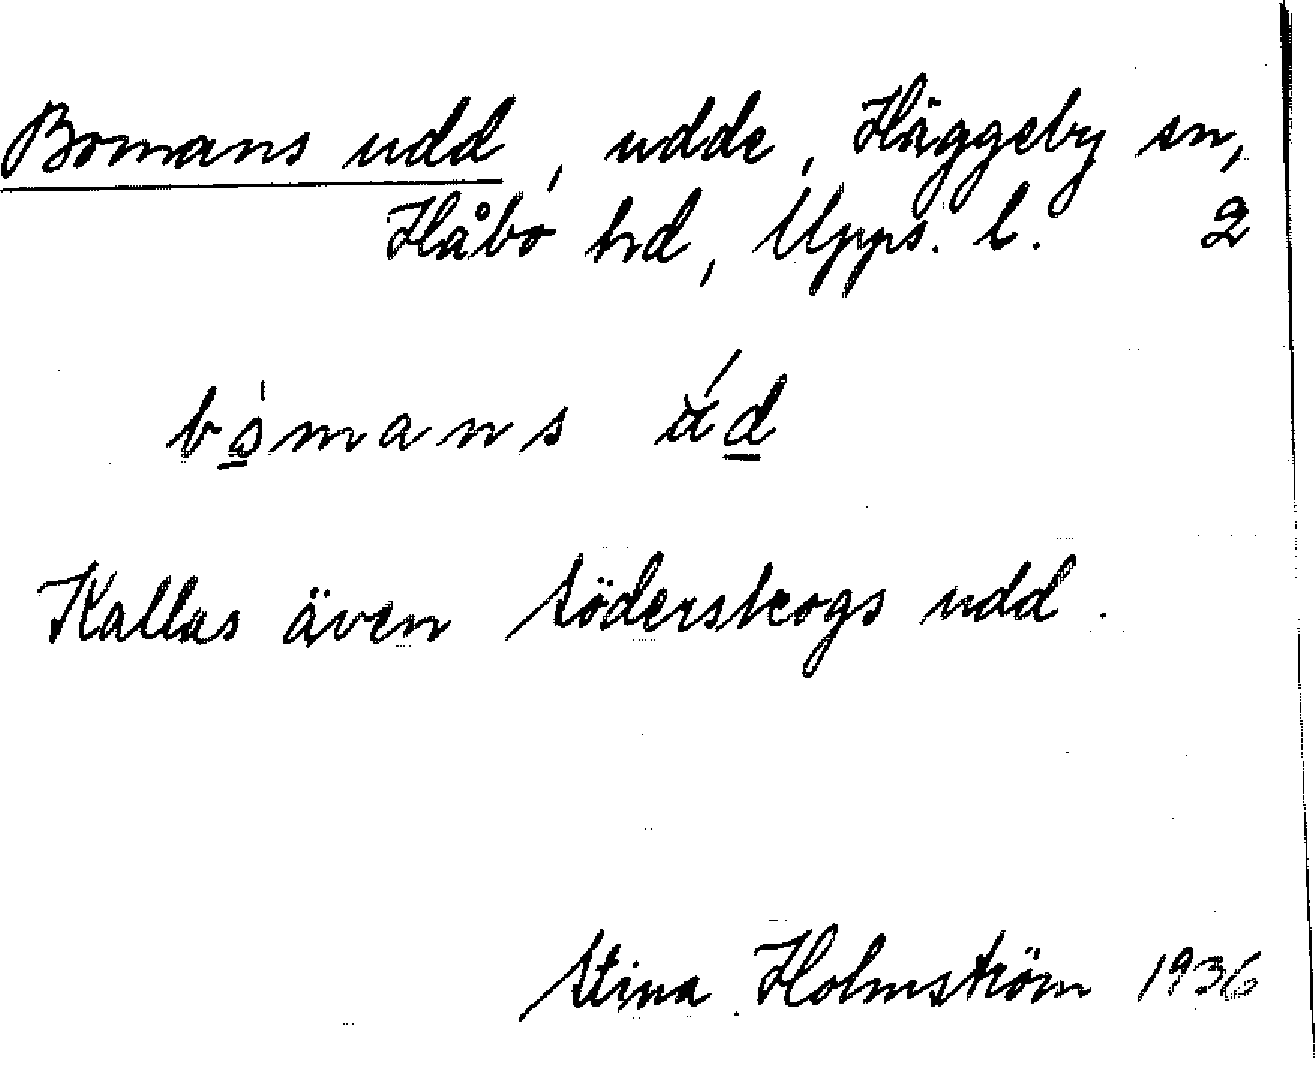 Bomans udd, udde, Häggeby sn,
Håbo hd, Upps. l. 2
bo̱mans
Kallas även Söderskogs udd.
Stina Holmström 1936